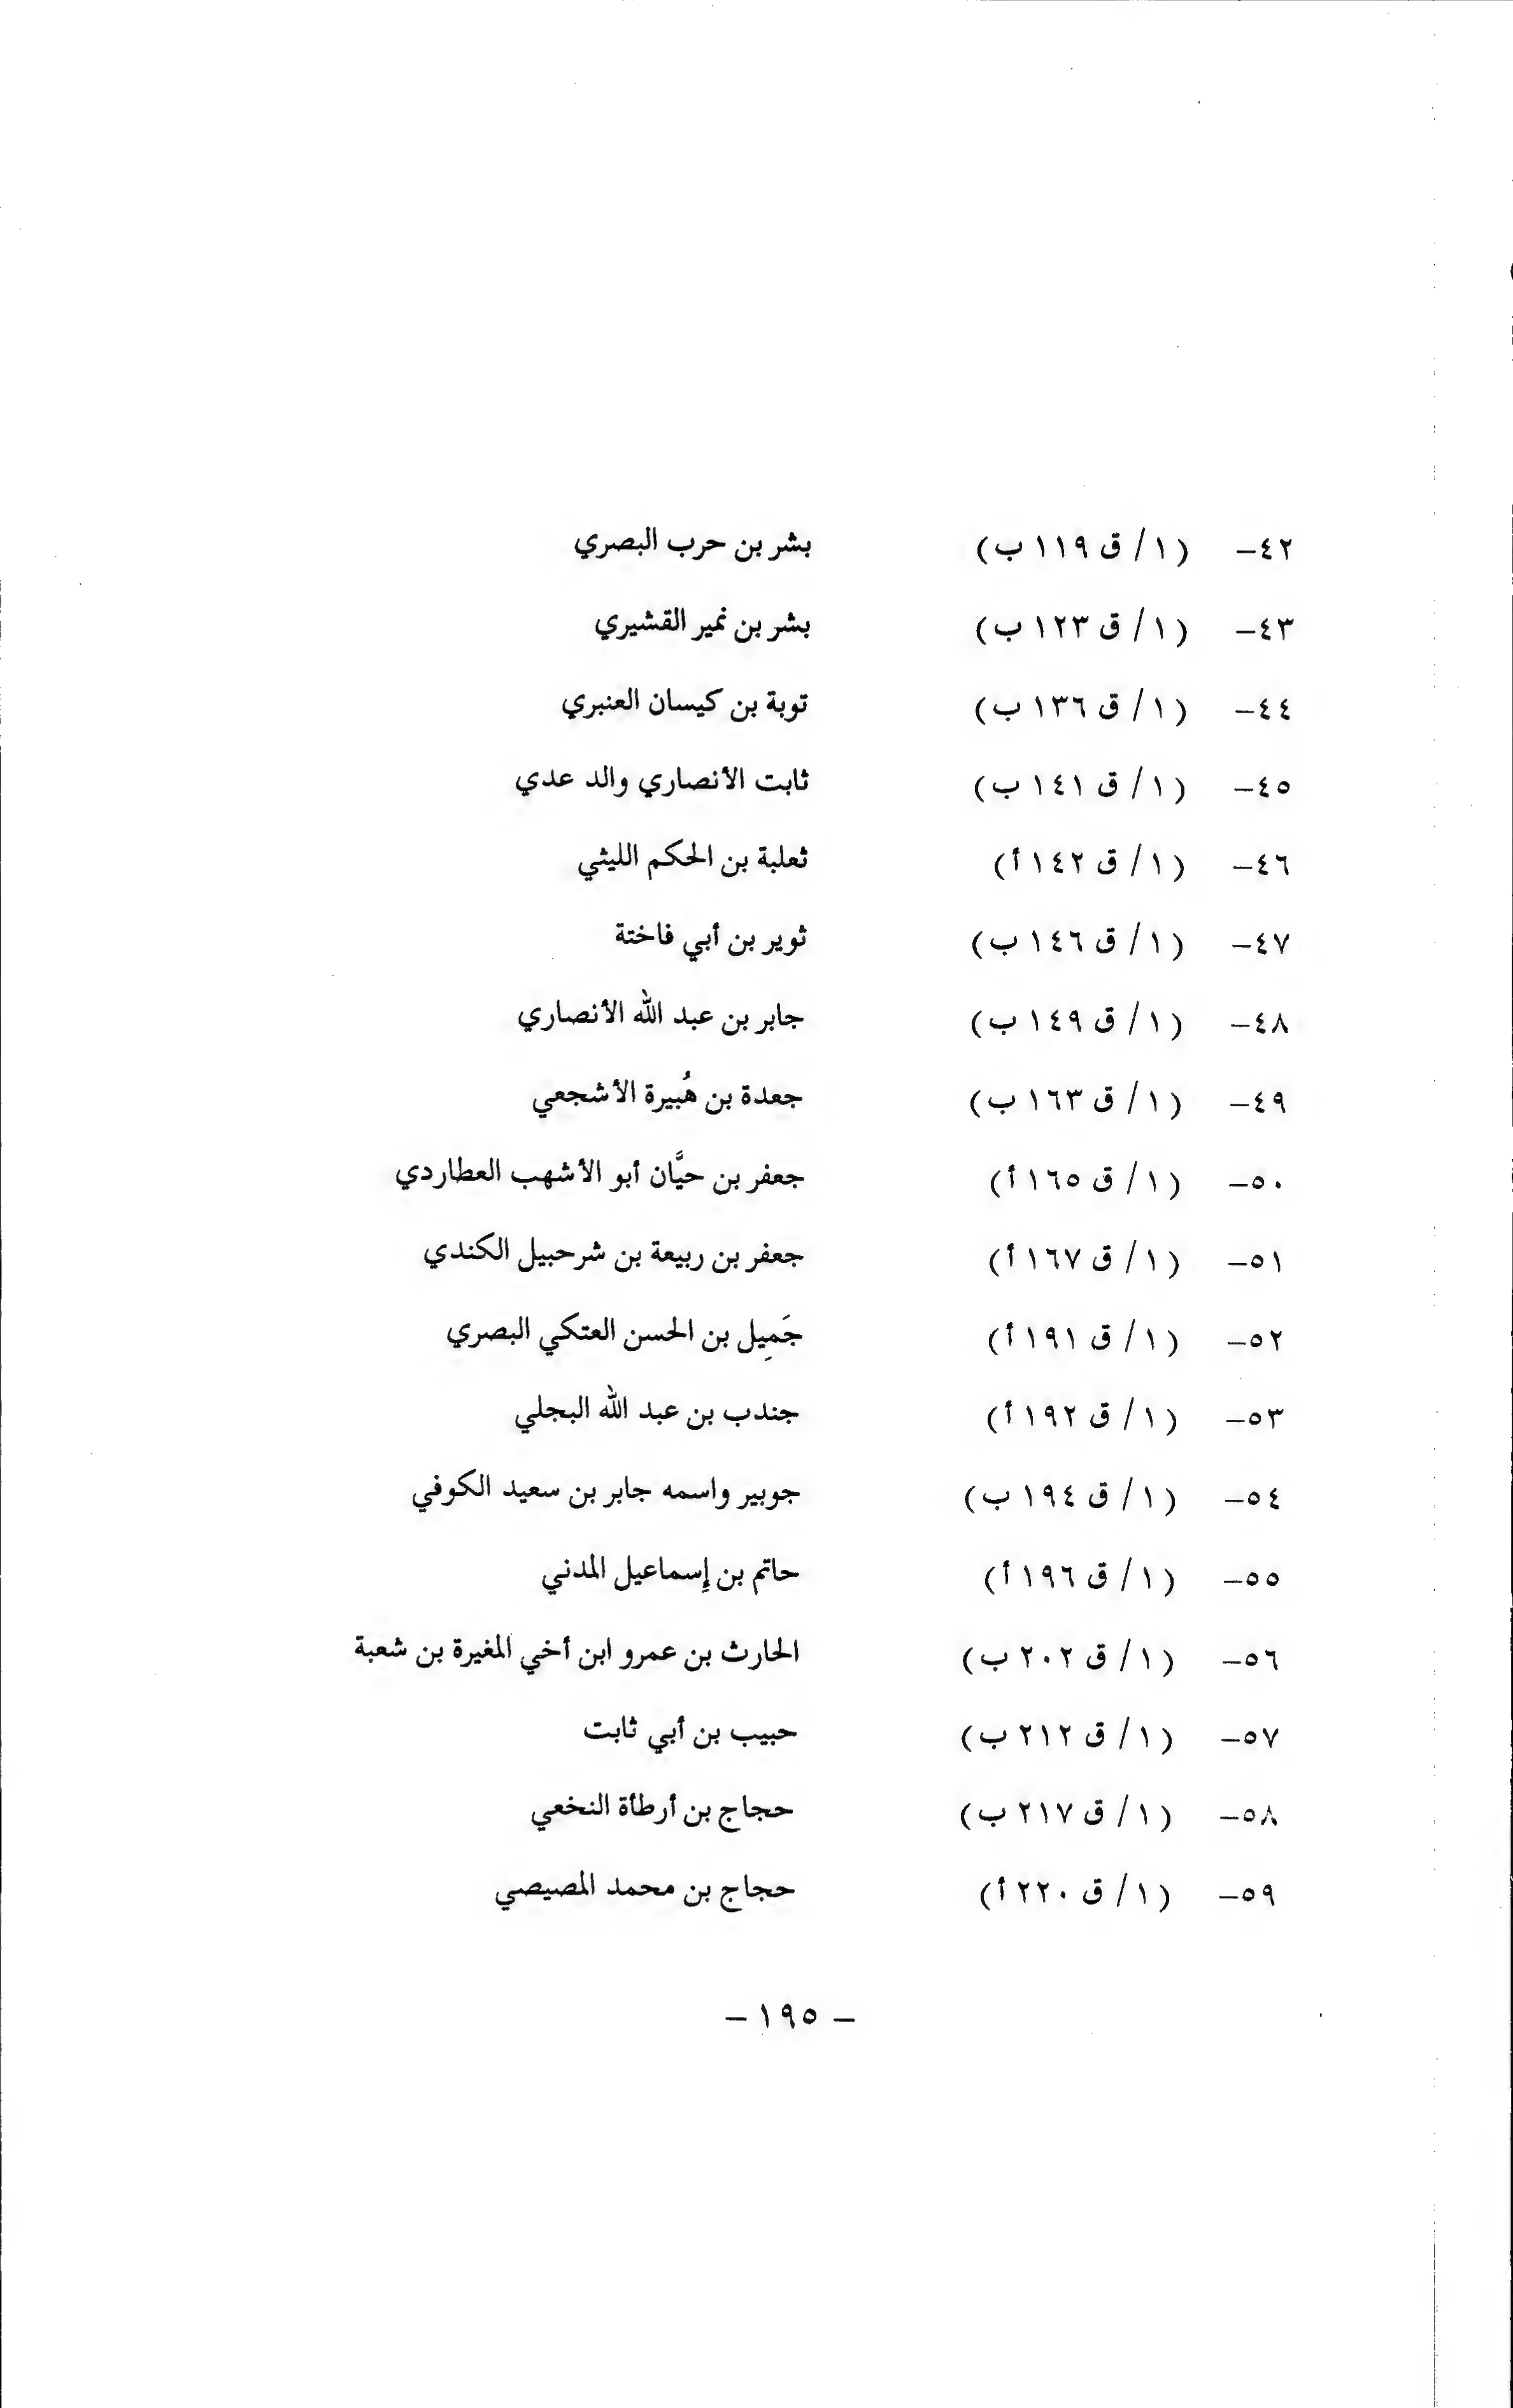 ٤٢– (١/ ق ١١٩ ب) بشر بن حرب البصري
٤٣– (١/ ق ١٢٣ ب) بشر بن نمير القشيري
٤٤– (١/ ق ١٣٦ ب) توبة بن كيسان العنبري
٤٥– (١/ ق ١٤١ ب) ثابت الأنصاري والد عدي
٤٦– (١/ ق ١٤٢ أ) ثعلبة بن الحكم الليثي
٤٧– (١/ ق ١٤٦ ب) ثوير بن أبي فاختة
٤٨– (١/ ق ١٤٩ ب) جابر بن عبد الله الأنصاري
٤٩– (١/ ق ١٦٣ ب) جعدة بن هُبيرة الأشجعي
٥٠– (١/ ق ١٦٥ أ) جعفر بن حيَّان أبو الأشهب العطاردي
٥١– (١/ ق ١٦٧ أ) جعفر بن ربيعة بن شرحبيل الكندي
٥٢– (١/ ق ١٩١ أ) جَمِيل بن الحسن العتكي البصري
٥٣– (١/ ق ١٩٢ أ) جندب بن عبد الله البجلي
٥٤– (١/ ق ١٩٤ ب) جوبير واسمه جابر بن سعيد الكوفي
٥٥– (١/ ق ١٩٦ أ) حاتم بن إِسماعيل المدني
٥٦– (١/ ق ٢٠٢ ب) الحارث بن عمرو ابن أخي المغيرة بن شعبة
٥٧– (١/ ق ٢١٢ ب) حبيب بن أبي ثابت
٥٨– (١/ ق ٢١٧ ب) حجاج بن أرطأة النخعي
٥٩– (١/ ق ٢٢٠ أ) حجاج بن محمد المصيصي
– ١٩٥ –